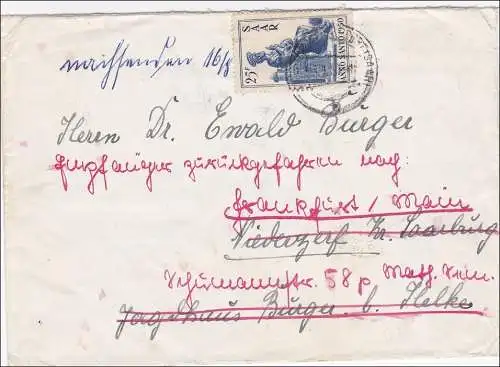 nachsenden 16/
25F
SAAR
ANNO SANTO 1950
Herrn Dr. Ewald Bürger
Empfänger zurückgefahren nach:
Frankfurt / Main
Niederzerf Kr. Saarburg
Schumannstr. 58 p Math.
Jagdhaus Bürger b. Helke